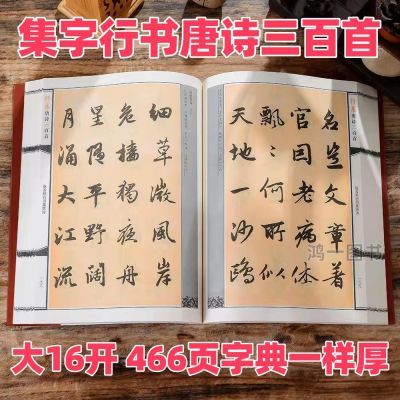 集字行书唐诗三百首
細草微風岸
危檣獨夜舟
星隨平野阔
月涌大江流
名豈文章著
官因老病休
飄〻何所似
天地一沙鷗
鸿一图书
大16开 466页字典一样厚